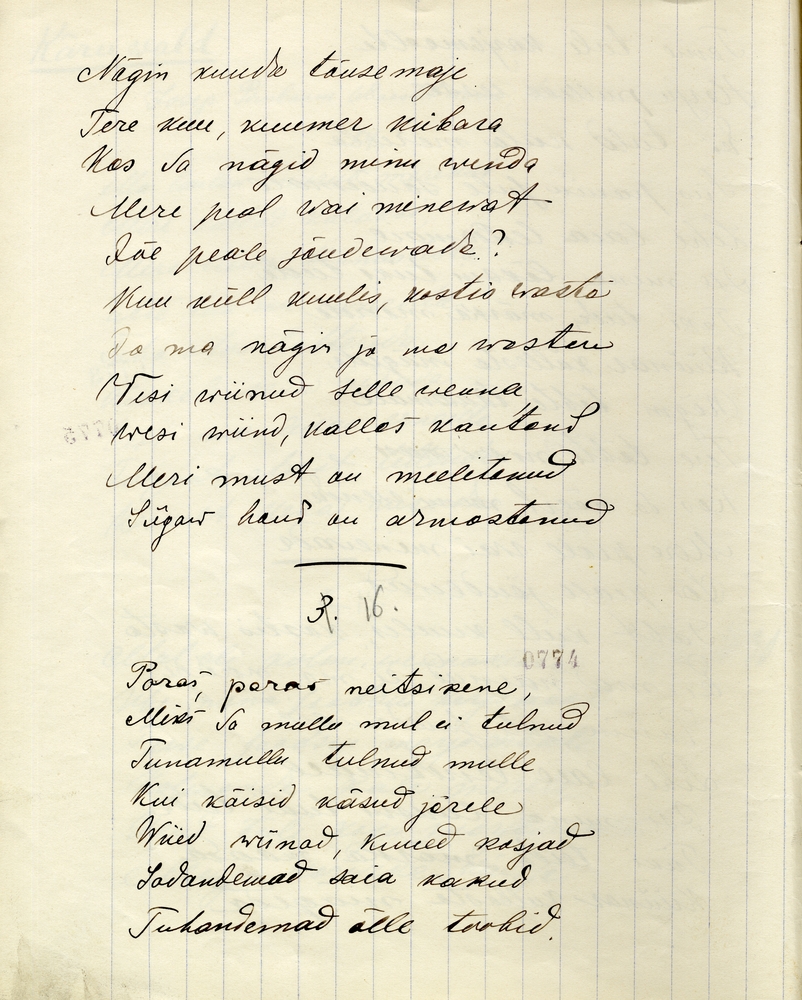 Nägin kuuda tõusemaje
Tere kuu, kuumer kübara
Kas Sa nägid minu wenda
Mere peal wai minewat
Jõe peale jõudewada?
Kuu küll kuulis, kostis wasta
Ja ma nägin ja ma wastan
Wesi wiinud selle wenna
Wesi wiind, kallas kautand
Meri must on meelitanud
Sügaw haud on armastanud
3. 16.
0774
Paras, paras neitsikene,
Miks Sa mullu mul ei tulnud
Tunamullu tulnud mulle
Kui käisid käsud järele
Wiied wiinad, kuued kosjad
Sadandemad saia kakud
Tuhandemad õlle toobid.